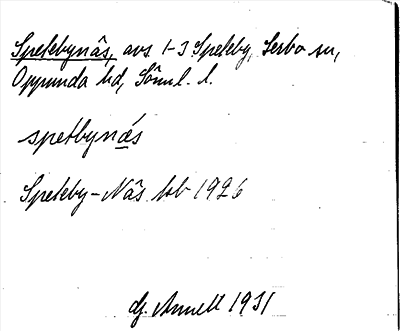 Spetebynäs, avs 1-3 Speteby, Lerbo sn,
Oppunda hd, Söml. l.
spetbynäs
Speteby-Näs tob 1926
Dj. Arnell 1931